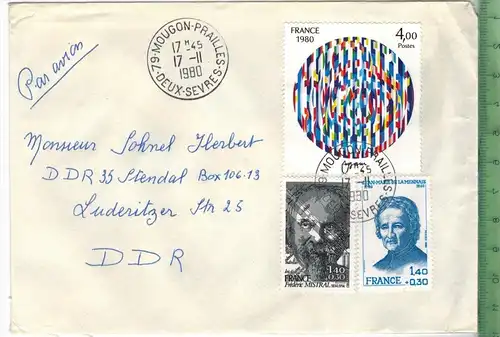 Par avion
79-MOUGON-PRAILLES
17 H 45
17 -11
1980
-DEUX-SEVRES-
FRANCE
1980
4,00
Postes
Monsieur Sohnel Herbert
DDR 35 Stendal Box 106.13
Luderitzer Str 25
DDR
79-MOUGON-PRAILLES
45
11
1980
DEUX-SEVRES
1,40
+0,30
FRANCE
Frédéric MISTRAL
JEAN-MARIE DE LA MENNAIS
1,40
+0,30
FRANCE